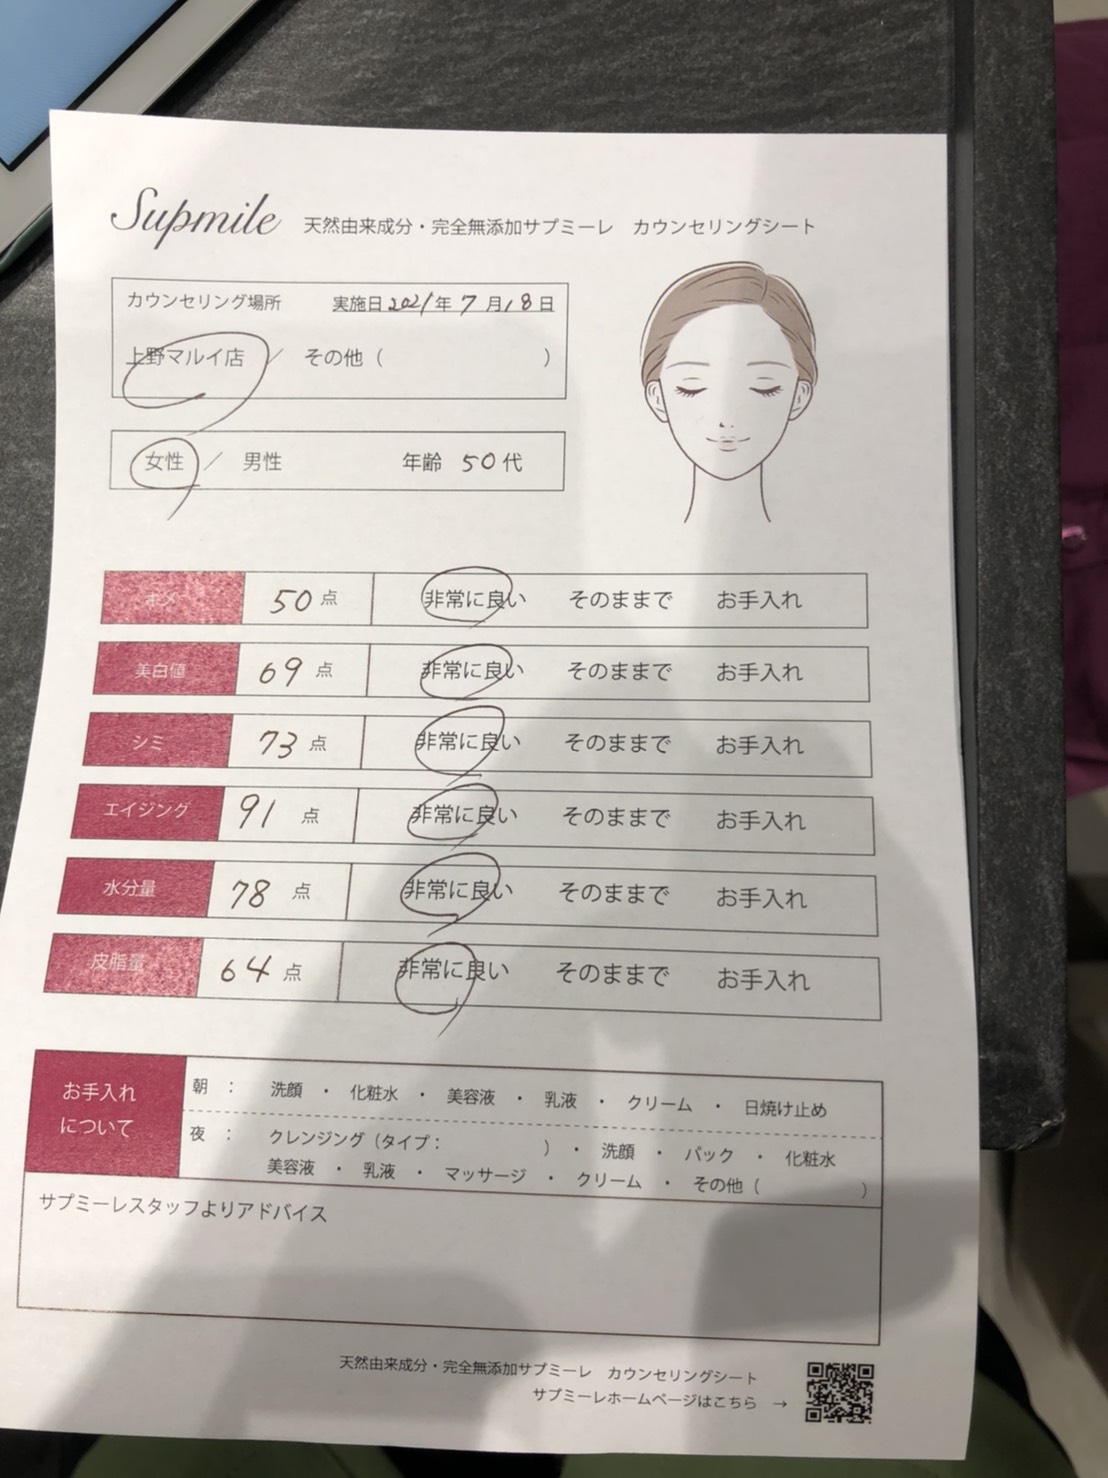 Supmile 天然由来成分・完全無添加サプミーレ カウンセリングシート
カウンセリング場所 実施日2021年7月18日
上野マルイ店 / その他( )
女性 / 男性 年齢 50代
キメ 50点 非常に良い そのままで お手入れ
美白値 69点 非常に良い そのままで お手入れ
シミ 73点 非常に良い そのままで お手入れ
エイジング 91点 非常に良い そのままで お手入れ
水分量 78点 非常に良い そのままで お手入れ
皮脂量 64点 非常に良い そのままで お手入れ
お手入れ
について
朝 : 洗顔 ・ 化粧水 ・ 美容液 ・ 乳液 ・ クリーム ・ 日焼け止め
夜 : クレンジング(タイプ: ) ・ 洗顔 ・ パック ・ 化粧水
美容液 ・ 乳液 ・ マッサージ ・ クリーム ・ その他( )
サプミーレスタッフよりアドバイス
天然由来成分・完全無添加サプミーレ カウンセリングシート
サプミーレホームページはこちら →